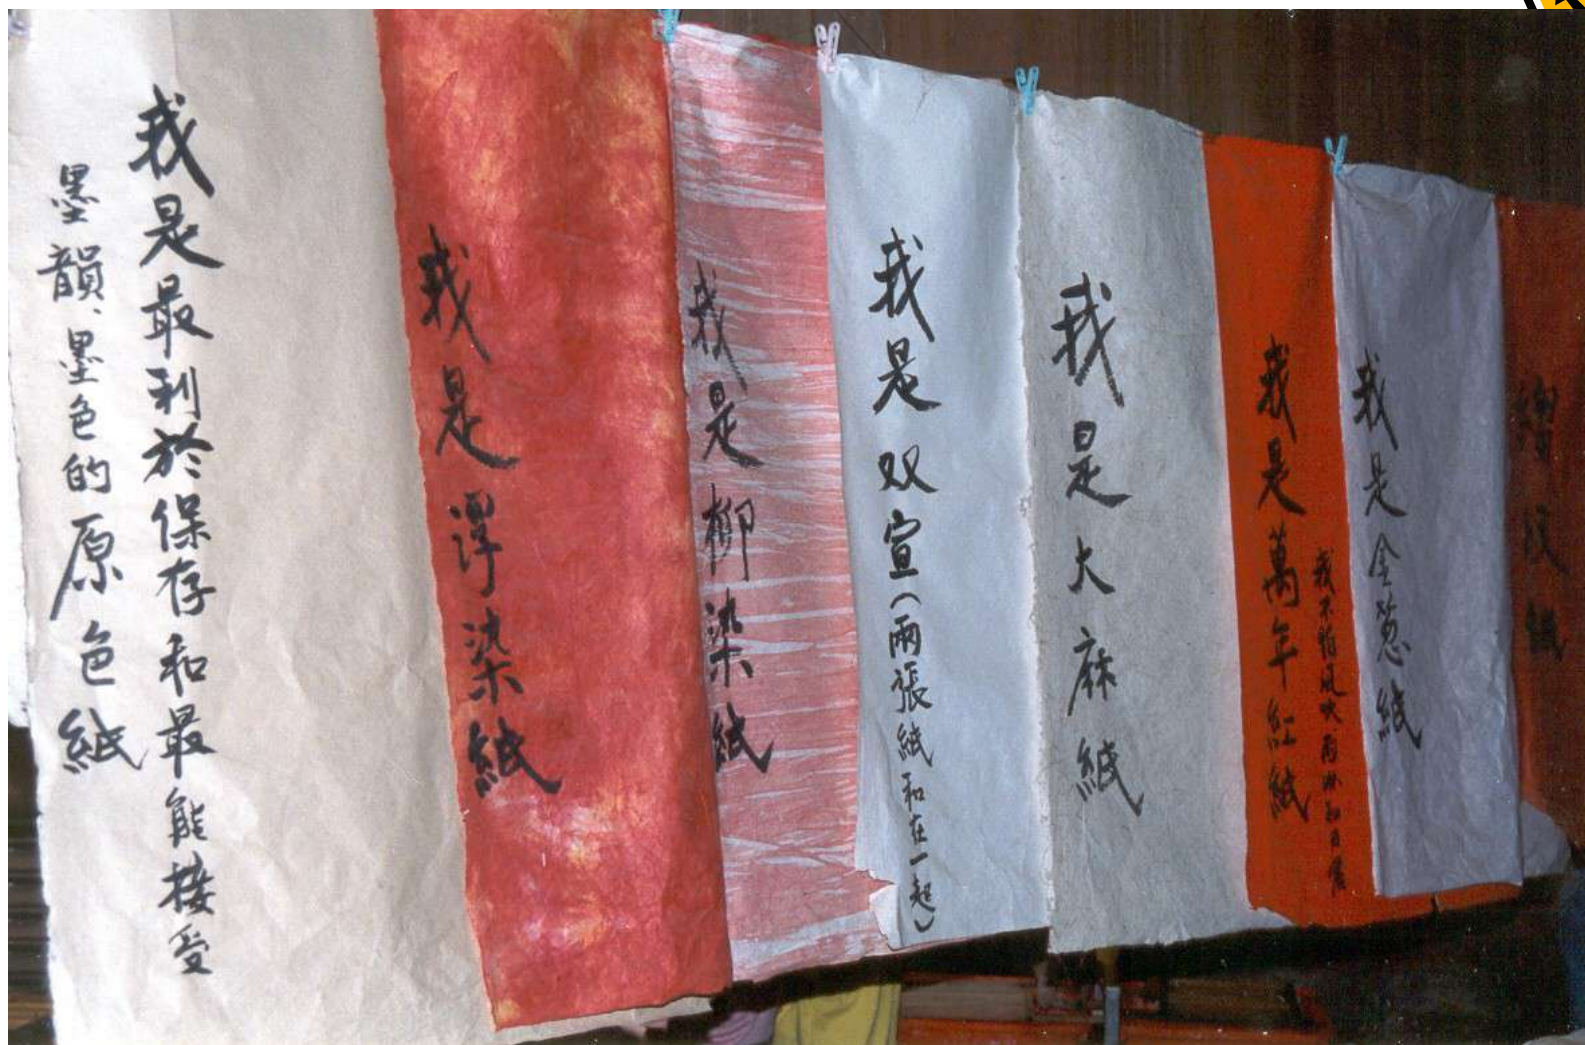 我是最利於保存和最能接受
墨韻、墨色的原色紙
我是浮染紙
我是柳染紙
我是双宣(兩張紙和在一起)
我是大麻紙
我是萬年紅紙
我不怕風吹雨淋和日曬
我是金蔥紙
紙